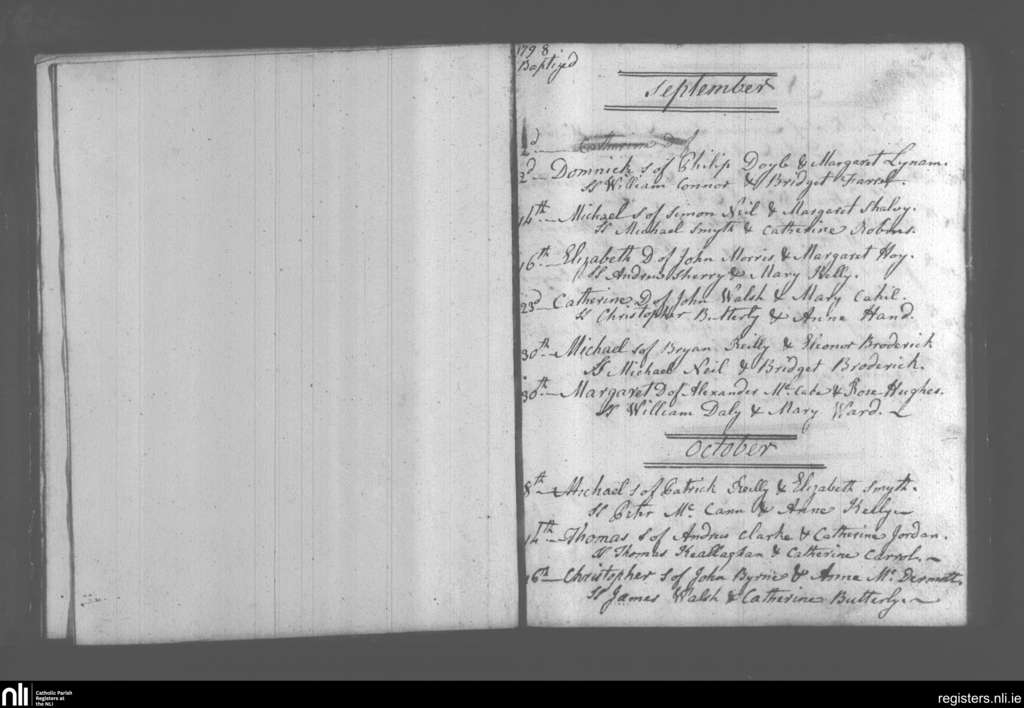 1798
Baptized
September
2d Catharine D of
2d Domnick s of Philip Doyle & Margaret Lynam.
Ss William Connor & Bridget Farrel.
14th Michael s of Simon Neil & Margaret
Ss Michael Smyth & Catherine
16th Elizabeth D of John Morris & Margaret Hoy.
Ss Andrew Sherry & Mary Kelly.
23d Catherine D of John Walsh & Mary Cahil.
Ss Christopher Butterly & Anne Hand.
30th Michael s of Bryan Reilly & Eleonor Broderick
Ss Michael Neil & Bridget Broderick.
30th Margaret D of Alexander Mc Cabe & Rose Hughes.
Ss William Daly & Mary Ward.
October
8th Michael s of Patrick Reilly & Elizabeth Smyth.
Ss Peter Mc Cann & Anne Kelly
14th Thomas s of Andrew Clarke & Catherine Jordan.
Ss Thomas Keallaghan & Catherine Carrol.
16th Christopher s of John Byrne & Anne Mc Dermott.
Ss James Walsh & Catherine Butterly
nli Catholic Parish
Registers at
the NLI
registers.nli.ie